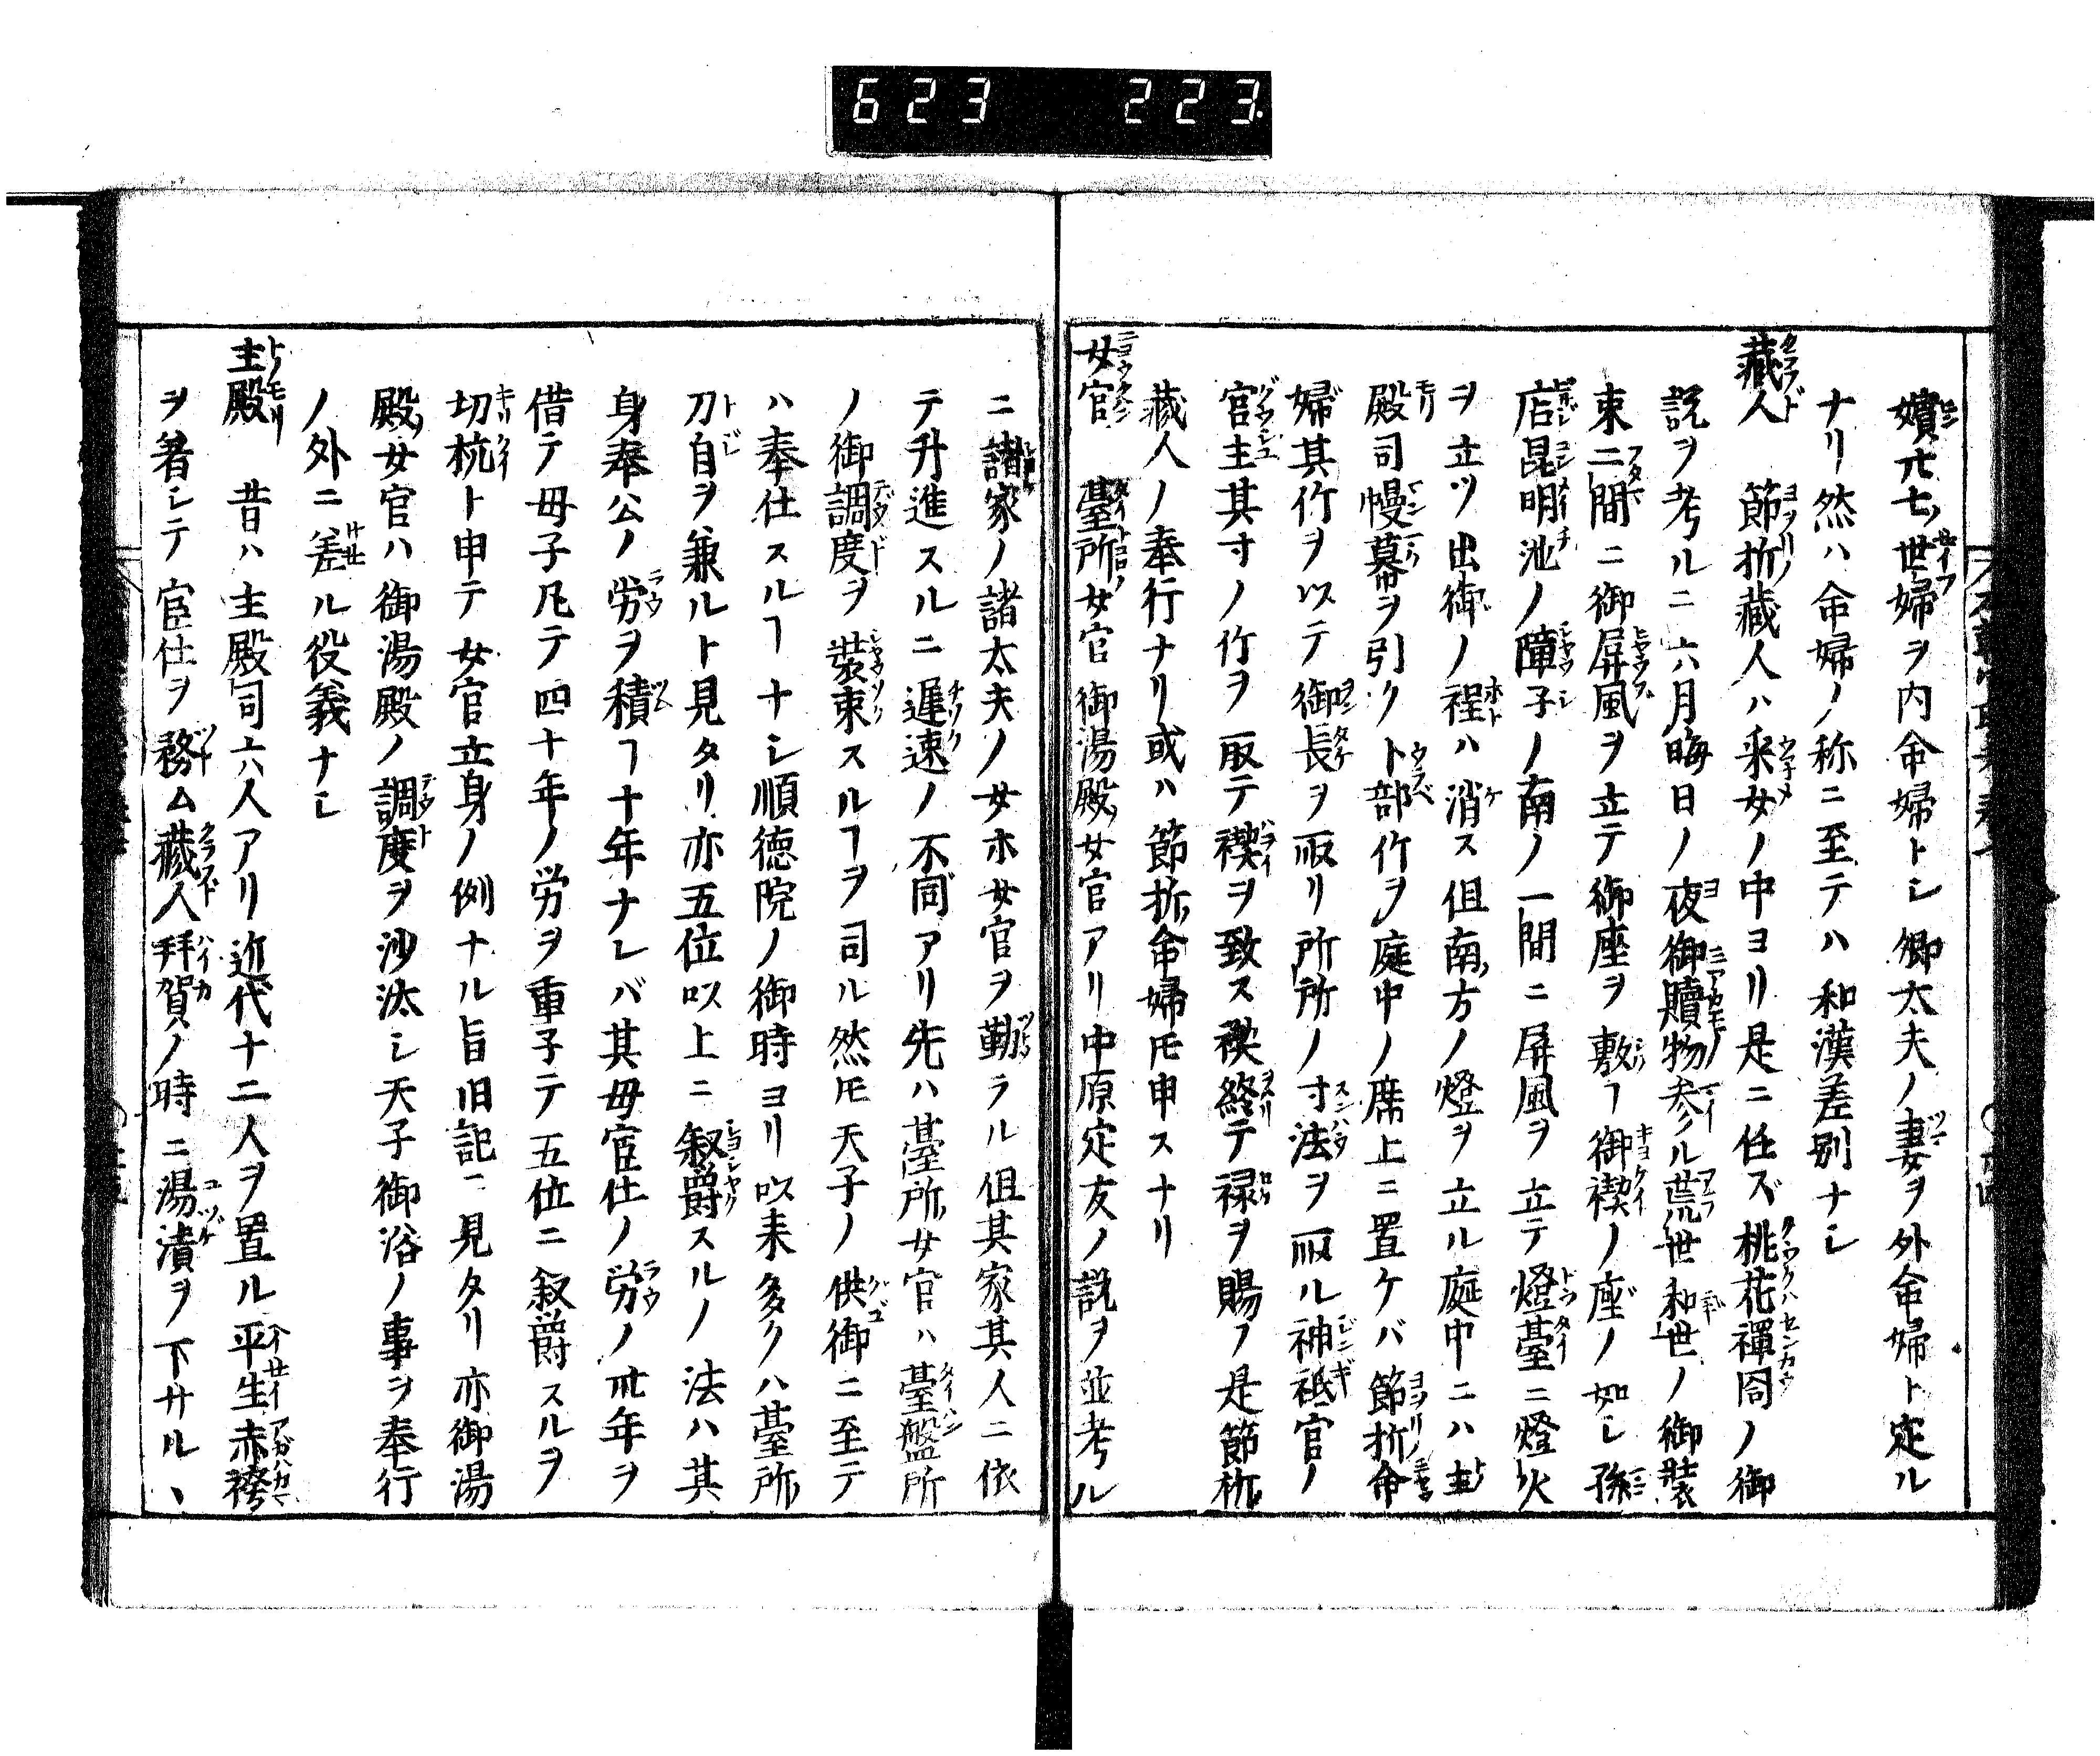 623 223
嬪廿七ノ世婦ヲ内命婦トシ卿太夫ノ妻ヲ外命婦ト定ル
ナリ然ハ命婦ノ称ニ至テハ和漢差別ナシ
藏人 節折藏人ハ采女ノ中ヨリ是ニ任ズ桃花禪閤ノ御
説ヲ考ルニ六月晦日ノ夜御贖物参ル荒世和世ノ御装
束二間ニ御屏風ヲ立テ御座ヲ敷ヿ御禊ノ座ノ如シ孫
庇昆明池ノ障子ノ南ノ一間ニ屏風ヲ立テ燈臺ニ燈火
ヲ立ツ出御ノ程ハ消ス但南方ノ燈ヲ立ル庭中ニハ主
殿司幔幕ヲ引ク卜部竹ヲ庭中ノ席上ニ置ケバ節折命
婦其竹ヲ以テ御長ヲ取リ所所ノ寸法ヲ取ル神祗官ノ
宮主其寸ノ竹ヲ取テ禊ヲ致ス禊終テ禄ヲ賜フ是節折
藏人ノ奉行ナリ或ハ節折命婦氏申スナリ
女官 臺所女官御湯殿女官アリ中原定友ノ説ヲ並考ル
ニ諸家ノ諸太夫ノ女ホ女官ヲ勤ラル但其家其人ニ依
テ升進スルニ遅速ノ不同アリ先ハ臺所女官ハ臺盤所
ノ御調度ヲ装束スルヿヲ司ル然氏天子ノ供御ニ至テ
ハ奉仕スルヿナシ順徳院ノ御時ヨリ以来多クハ臺所
刀自ヲ兼ルト見タリ亦五位以上ニ叙爵スルノ法ハ其
身奉公ノ労ヲ積ヿ十年ナレバ其母宦仕ノ労ノ卅年ヲ
借テ母子凡テ四十年ノ労ヲ重子テ五位ニ叙爵スルヲ
切杭ト申テ女官立身ノ例ナル旨旧記ニ見タリ亦御湯
殿女官ハ御湯殿ノ調度ヲ沙汰シ天子御浴ノ事ヲ奉行
ノ外ニ差ル役義ナシ
主殿 昔ハ主殿司六人アリ近代十二人ヲ置ル平生赤袴
ヲ著シテ宦仕ヲ務ム藏人拜賀ノ時ニ湯漬ヲ下サルヽ